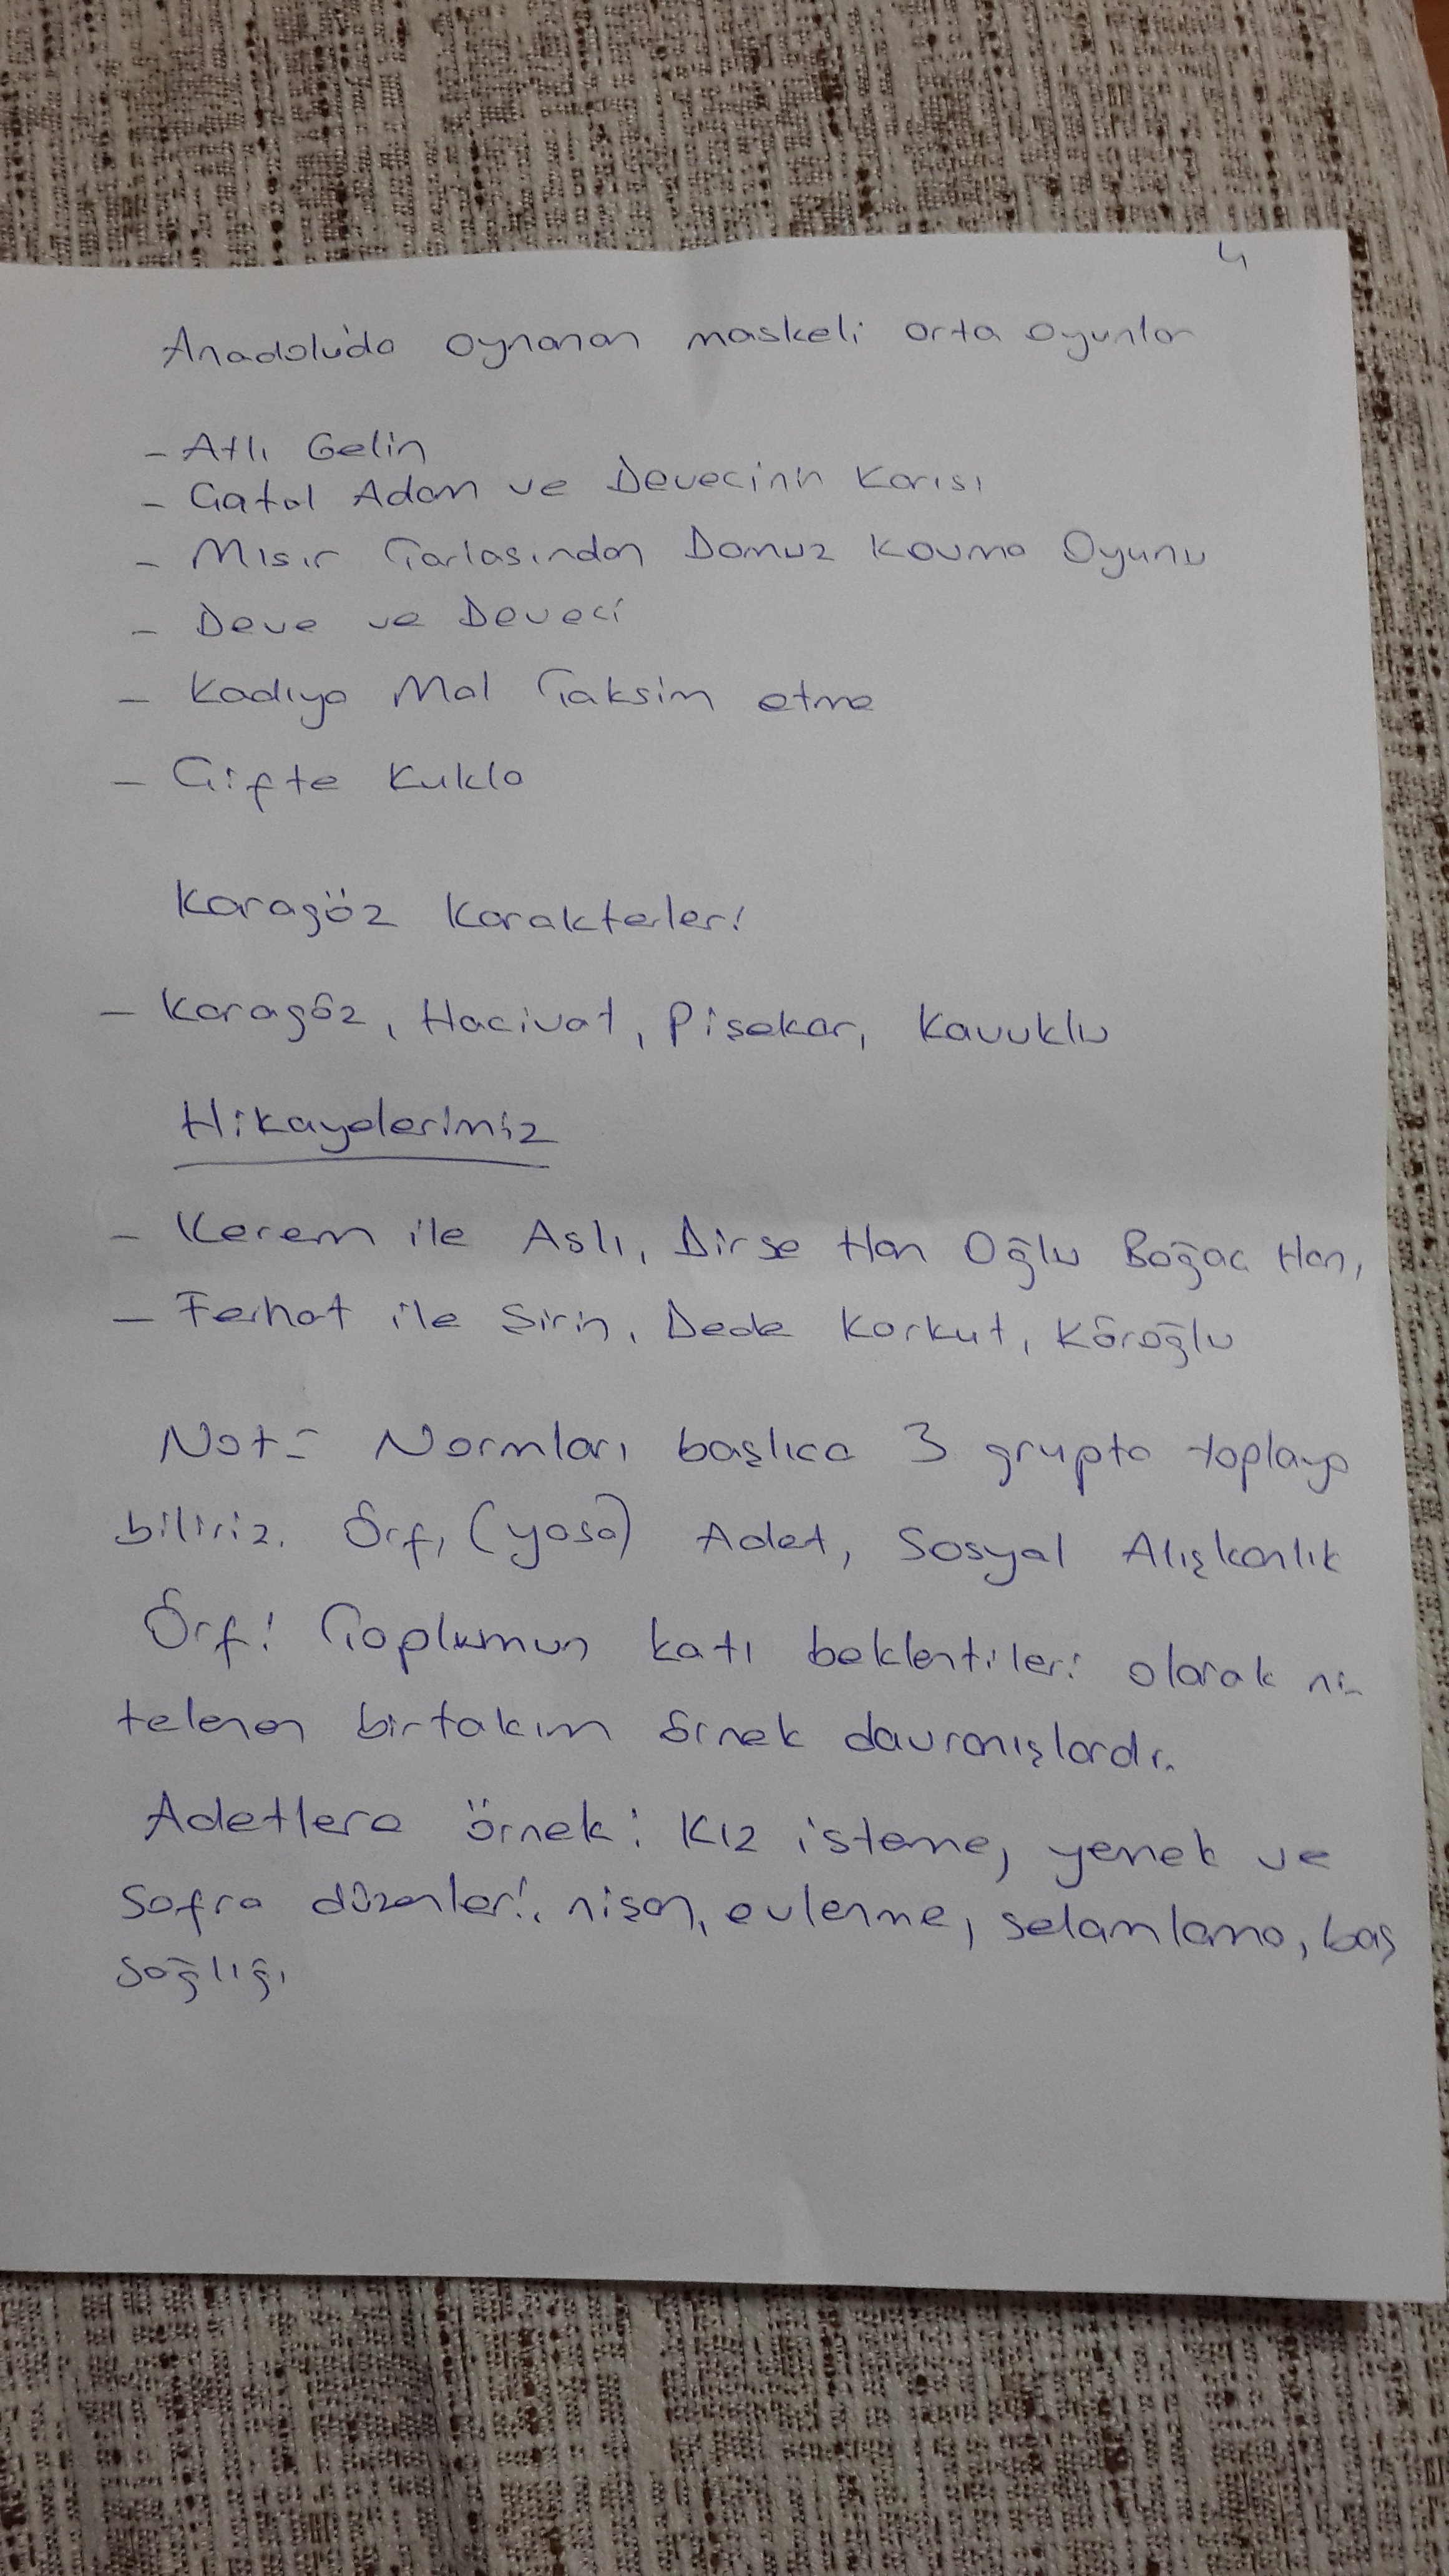 4
Anadolu'da oynanan maskeli orta oyunlar
- Atlı Gelin
- Çatal Adam ve Devecinin Karısı
- Mısır Tarlasından Domuz Kovma Oyunu
- Deve ve Deveci
- Kadıya Mal Taksim etme
- Çifte Kukla
Karagöz Karakterleri
- Karagöz, Hacivat, Pişekar, Kavuklu
Hikayelerimiz
- Kerem ile Aslı, Dirse Han Oğlu Boğaç Han,
- Ferhat ile Şirin, Dede Korkut, Köroğlu
Not= Normları başlıca 3 grupta toplaya
biliriz. Örf, (yasa) Adet, Sosyal Alışkanlık
Örf: Toplumun katı beklentileri olarak ni-
telenen birtakım örnek davranışlardır.
Adetlere örnek: Kız isteme, yemek ve
Sofra düzenleri, nişan, evlenme, selamlama, baş
sağlığı